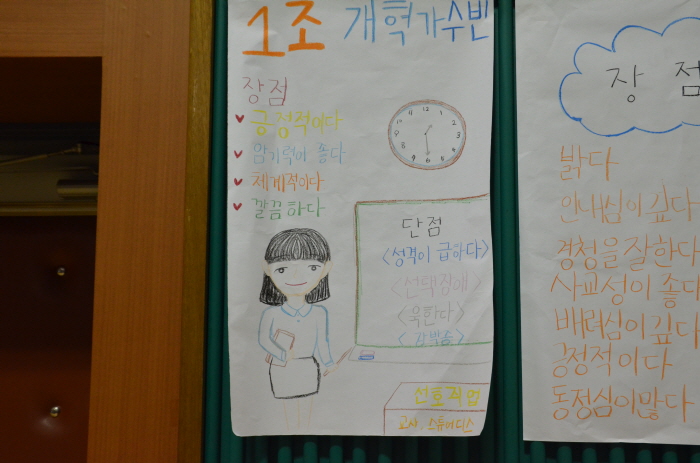 1조 개혁가수빈
장점
긍정적이다
암기력이 좋다
체계적이다
깔끔하다
12
1
2
3
4
5
6
7
8
9
10
11
단점
<성격이 급하다>
<선택장애>
<욱한다>
<강박증>
선호직업
교사, 스튜어디스
장 점
밝다
인내심이 깊다
경청을 잘한다
사교성이 좋다
배려심이 깊다
긍정적이다
동정심이많다